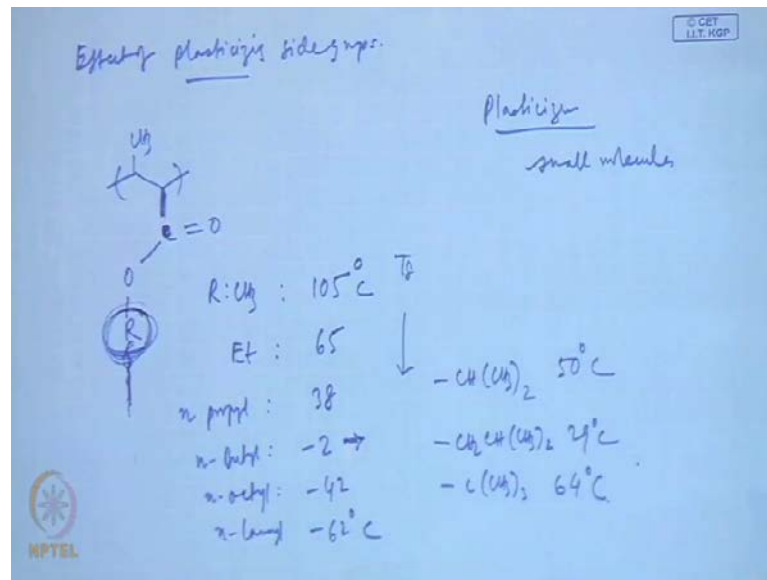 © CET
I.I.T. KGP
Effect of plasticizing side groups.
Plasticizer
small molecules
CH3
C = O
O
R
R: CH3 : 105°C Tg
Et : 65
n propyl : 38
n-butyl : -2
n-octyl : -42
n-lauryl -62°C
- CH(CH3)2 50°C
- CH2CH(CH3)2 29°C
- C(CH3)3 64°C
NPTEL